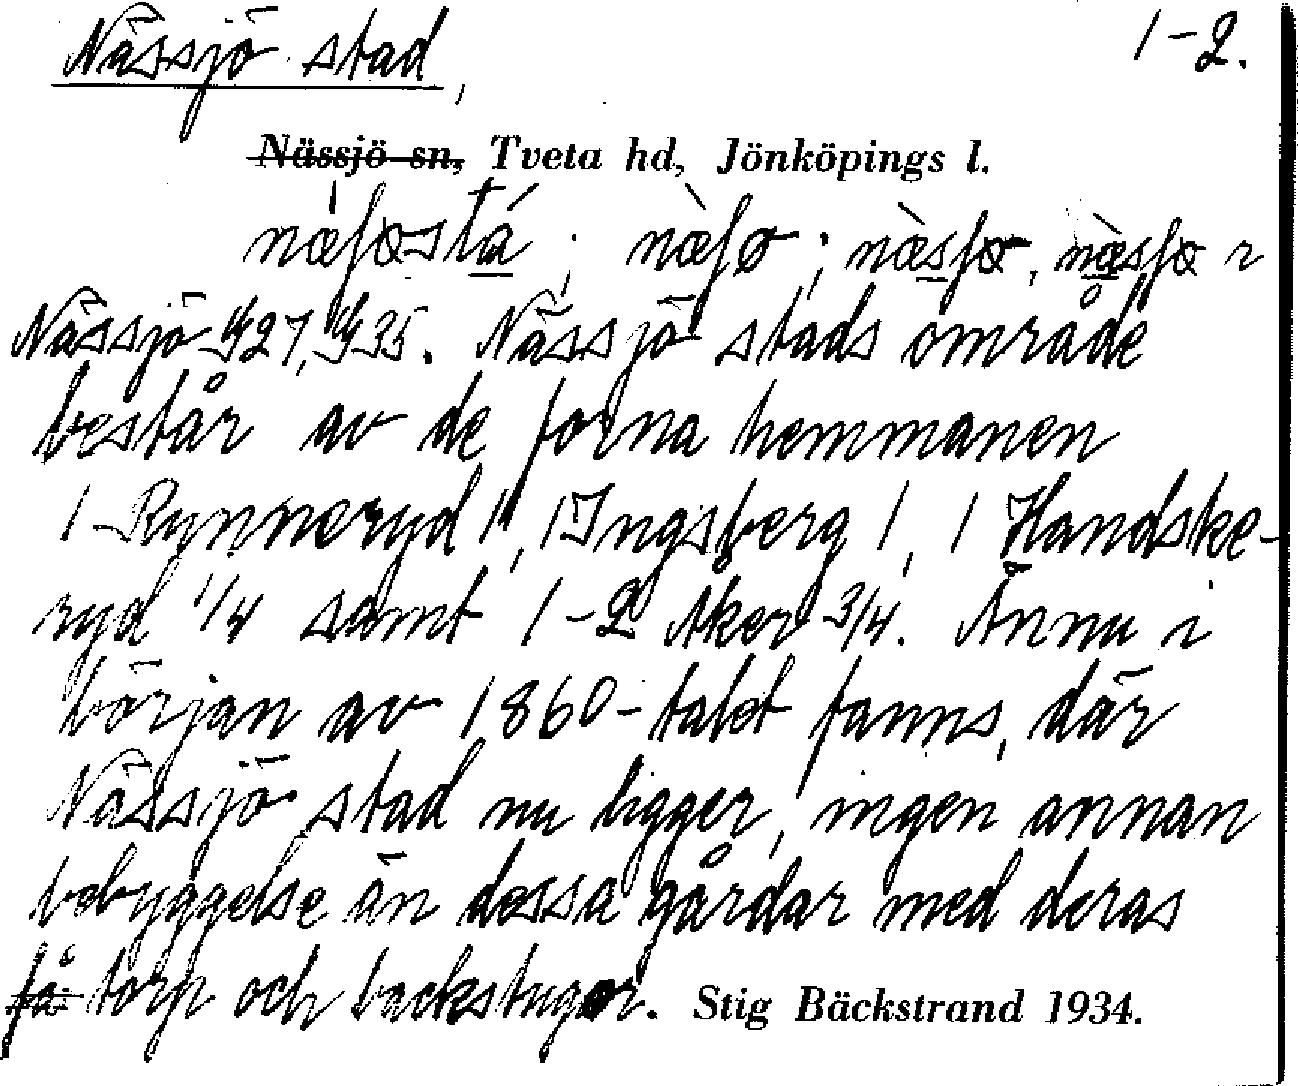 Nässjö stad, 1-2.
Nässjö sn, Tveta hd, Jönköpings l.
i
Nässjö 27, 35. Nässjö stads område
består av de forna hemmanen
1 Rynneryd 1, 1 Ingsberg 1, 1 Handske-
ryd 1/4 samt 1-2 Åker 3/4. Ännu i
början av 1860-talet fanns, där
Nässjö stad nu ligger, ingen annan
bebyggelse än dessa gårdar med deras
få torp och backstugor. Stig Bäckstrand 1934.